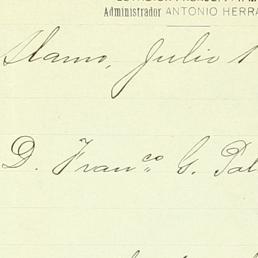 Administrador ANTONIO HERRA
Alamo, Julio 1
D. Franco G. Pal